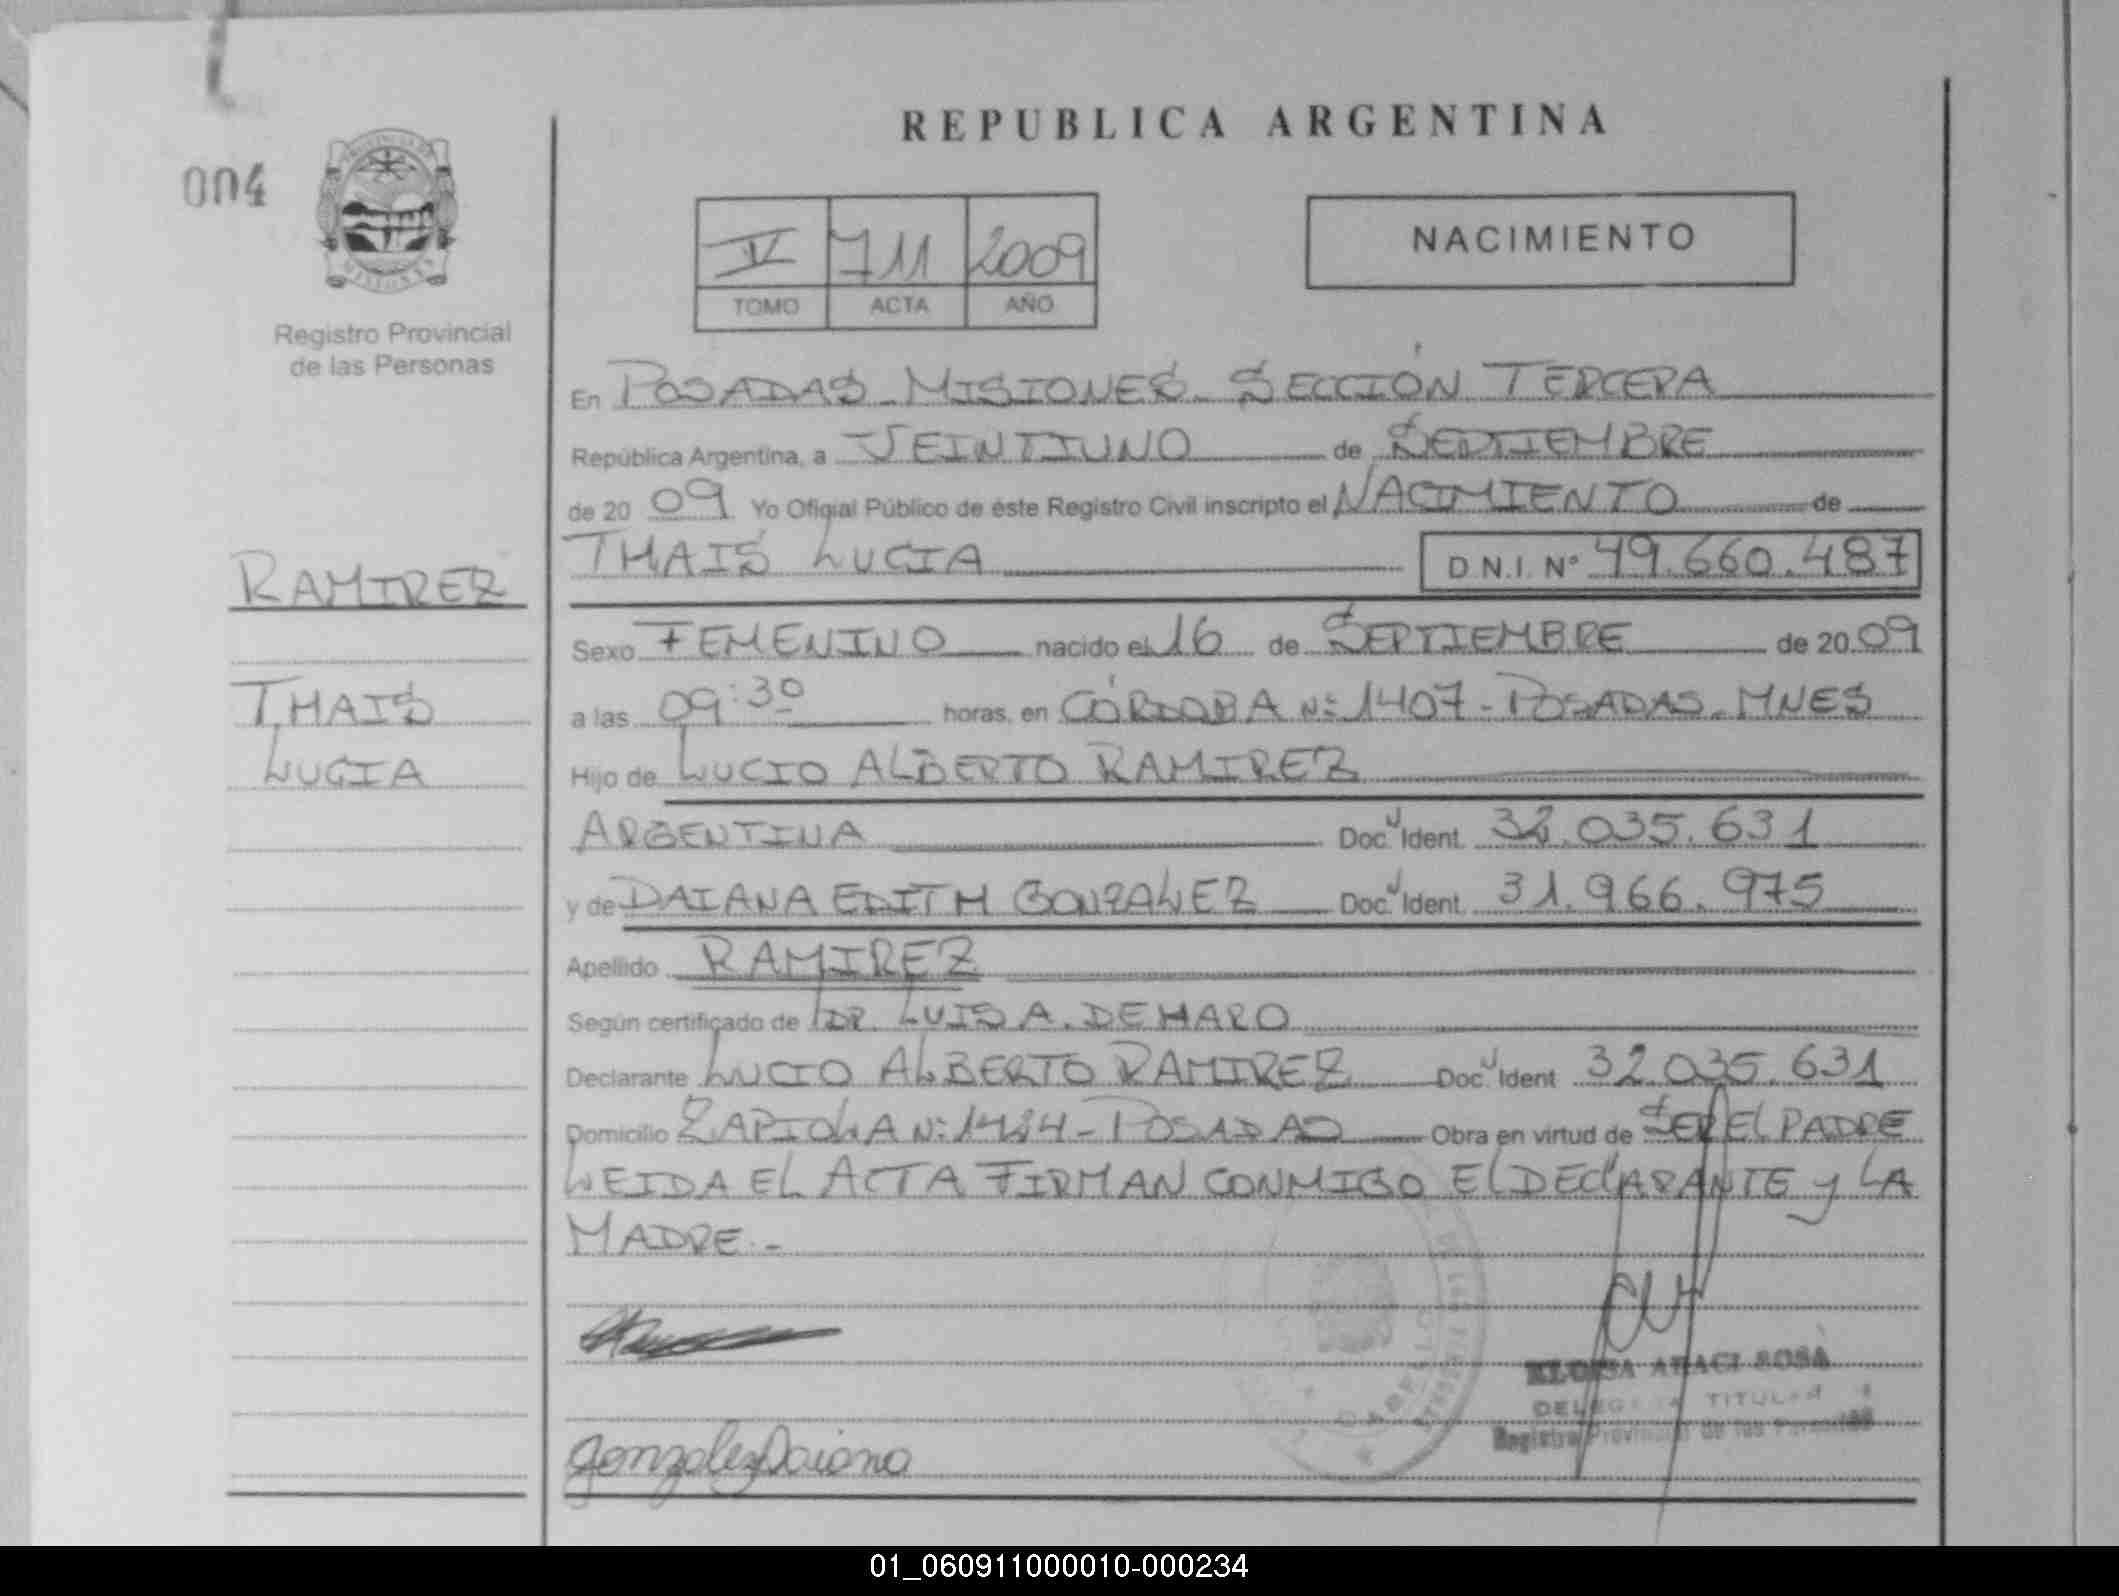 REPUBLICA ARGENTINA
004
PROVINCIA DE
MISIONES
Registro Provincial
de las Personas
NACIMIENTO
V 711 2009
TOMO ACTA AÑO
En POSADAS - MISIONES - SECCIÓN TERCERA
República Argentina, a VEINTIUNO de SEPTIEMBRE
de 20 09 Yo Oficial Público de éste Registro Civil inscripto el NACIMIENTO de
THAIS LUCIA D.N.I. Nº 49.660.487
RAMIREZ
THAIS
LUCIA
Sexo FEMENINO nacido el 16 de SEPTIEMBRE de 20 09
a las 09:30 horas, en CÓRDOBA Nº 1407 - POSADAS - MNES
Hijo de LUCIO ALBERTO RAMIREZ
ARGENTINA Doc. Ident. 32.035.631
y de DAIANA EDITH GONZALEZ Doc. Ident. 31.966.975
Apellido RAMIREZ
Según certificado de DR. LUIS A. DEHARO
Declarante LUCIO ALBERTO RAMIREZ Doc. Ident. 32.035.631
Domicilio ZAPIOLA Nº 1414 - POSADAS Obra en virtud de SER EL PADRE
LEIDA EL ACTA FIRMAN CONMIGO EL DECLARANTE y LA
MADRE.-
ELOISA ARACI SOSA
DELEGADA TITULAR
Registro Provincial de las Personas
Gonzalez Daiana
01_060911000010-000234